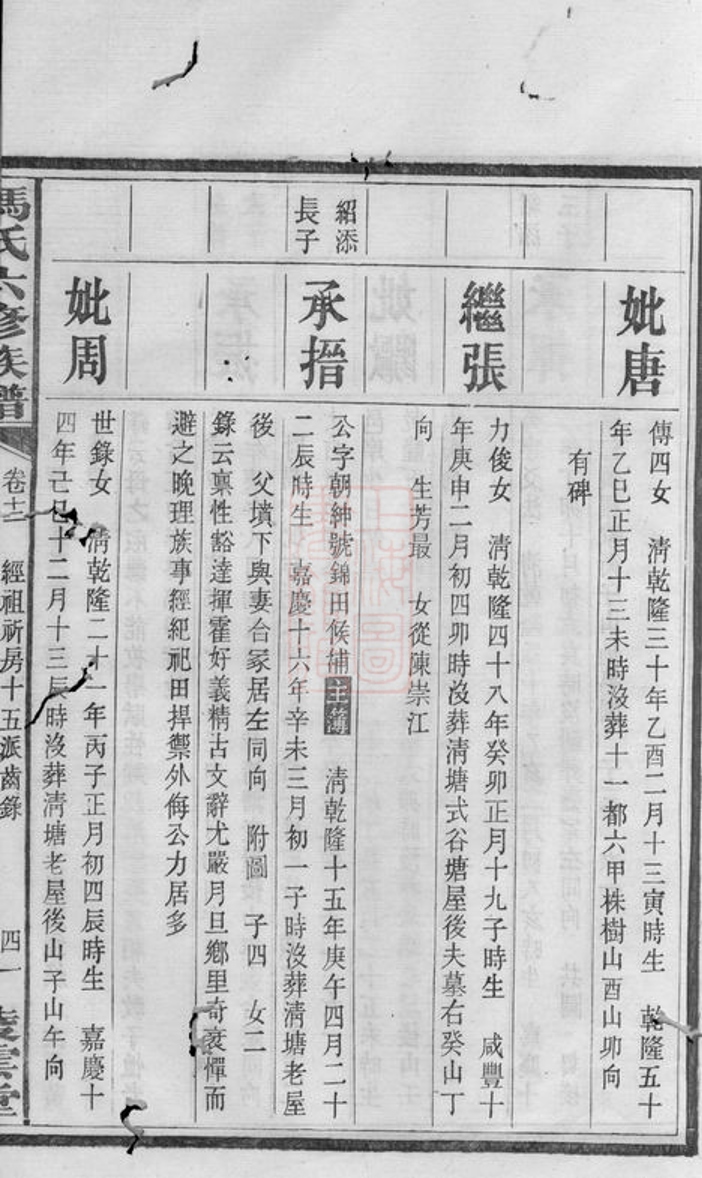 妣唐
傳四女　清乾隆三十年乙酉二月十三寅時生　乾隆五十
年乙巳正月十三未時沒葬十一都六甲株樹山酉山卯向
有碑
繼張
力俊女　清乾隆四十八年癸卯正月十九子時生　咸豐十
年庚申二月初四卯時沒葬淸塘式谷塘屋後夫墓右癸山丁
向　生芳最　女從陳崇江
紹添
長子
承搢
公字朝紳號錦田候補主簿　淸乾隆十五年庚午四月二十
二辰時生　嘉慶十六年辛未三月初一子時沒葬淸塘老屋
後　父墳下與妻合冢居左同向　附圖　子四　女二
錄云禀性豁達揮霍好義精古文辭尤嚴月旦鄉里奇衺憚而
避之晚理族事經紀祀田捍禦外侮公力居多
妣周
世錄女　淸乾隆二十一年丙子正月初四辰時生　嘉慶十
四年己巳十二月十三辰時沒葬淸塘老屋後山子山午向
馮氏六修族譜
卷十二　經祖祈房十五派齒錄　四一